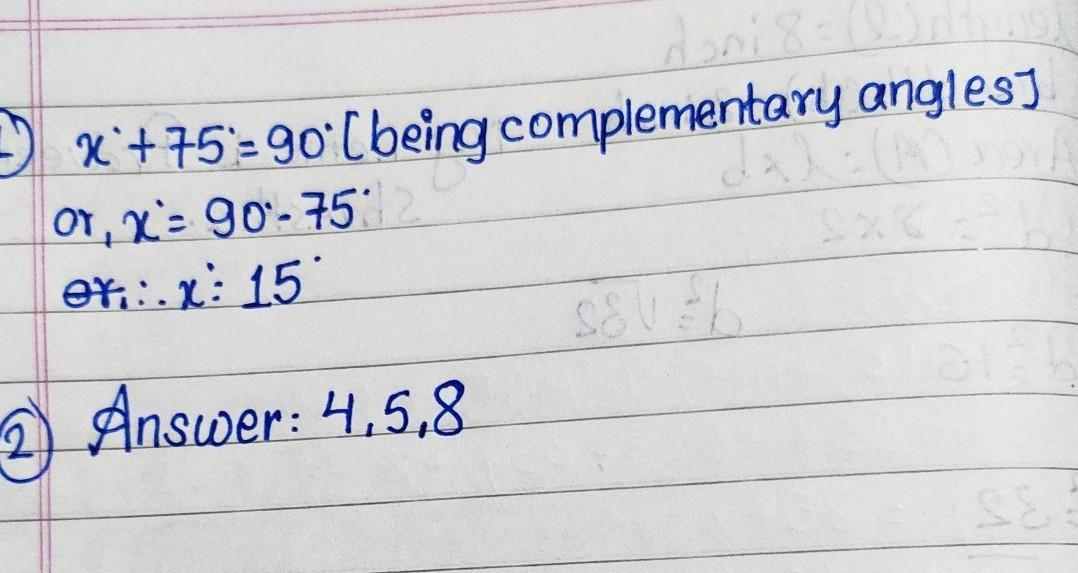 1) x° + 75° = 90° [being complementary angles]
or, x° = 90° - 75°
or, ∴ x° = 15°
2) Answer: 4,5,8